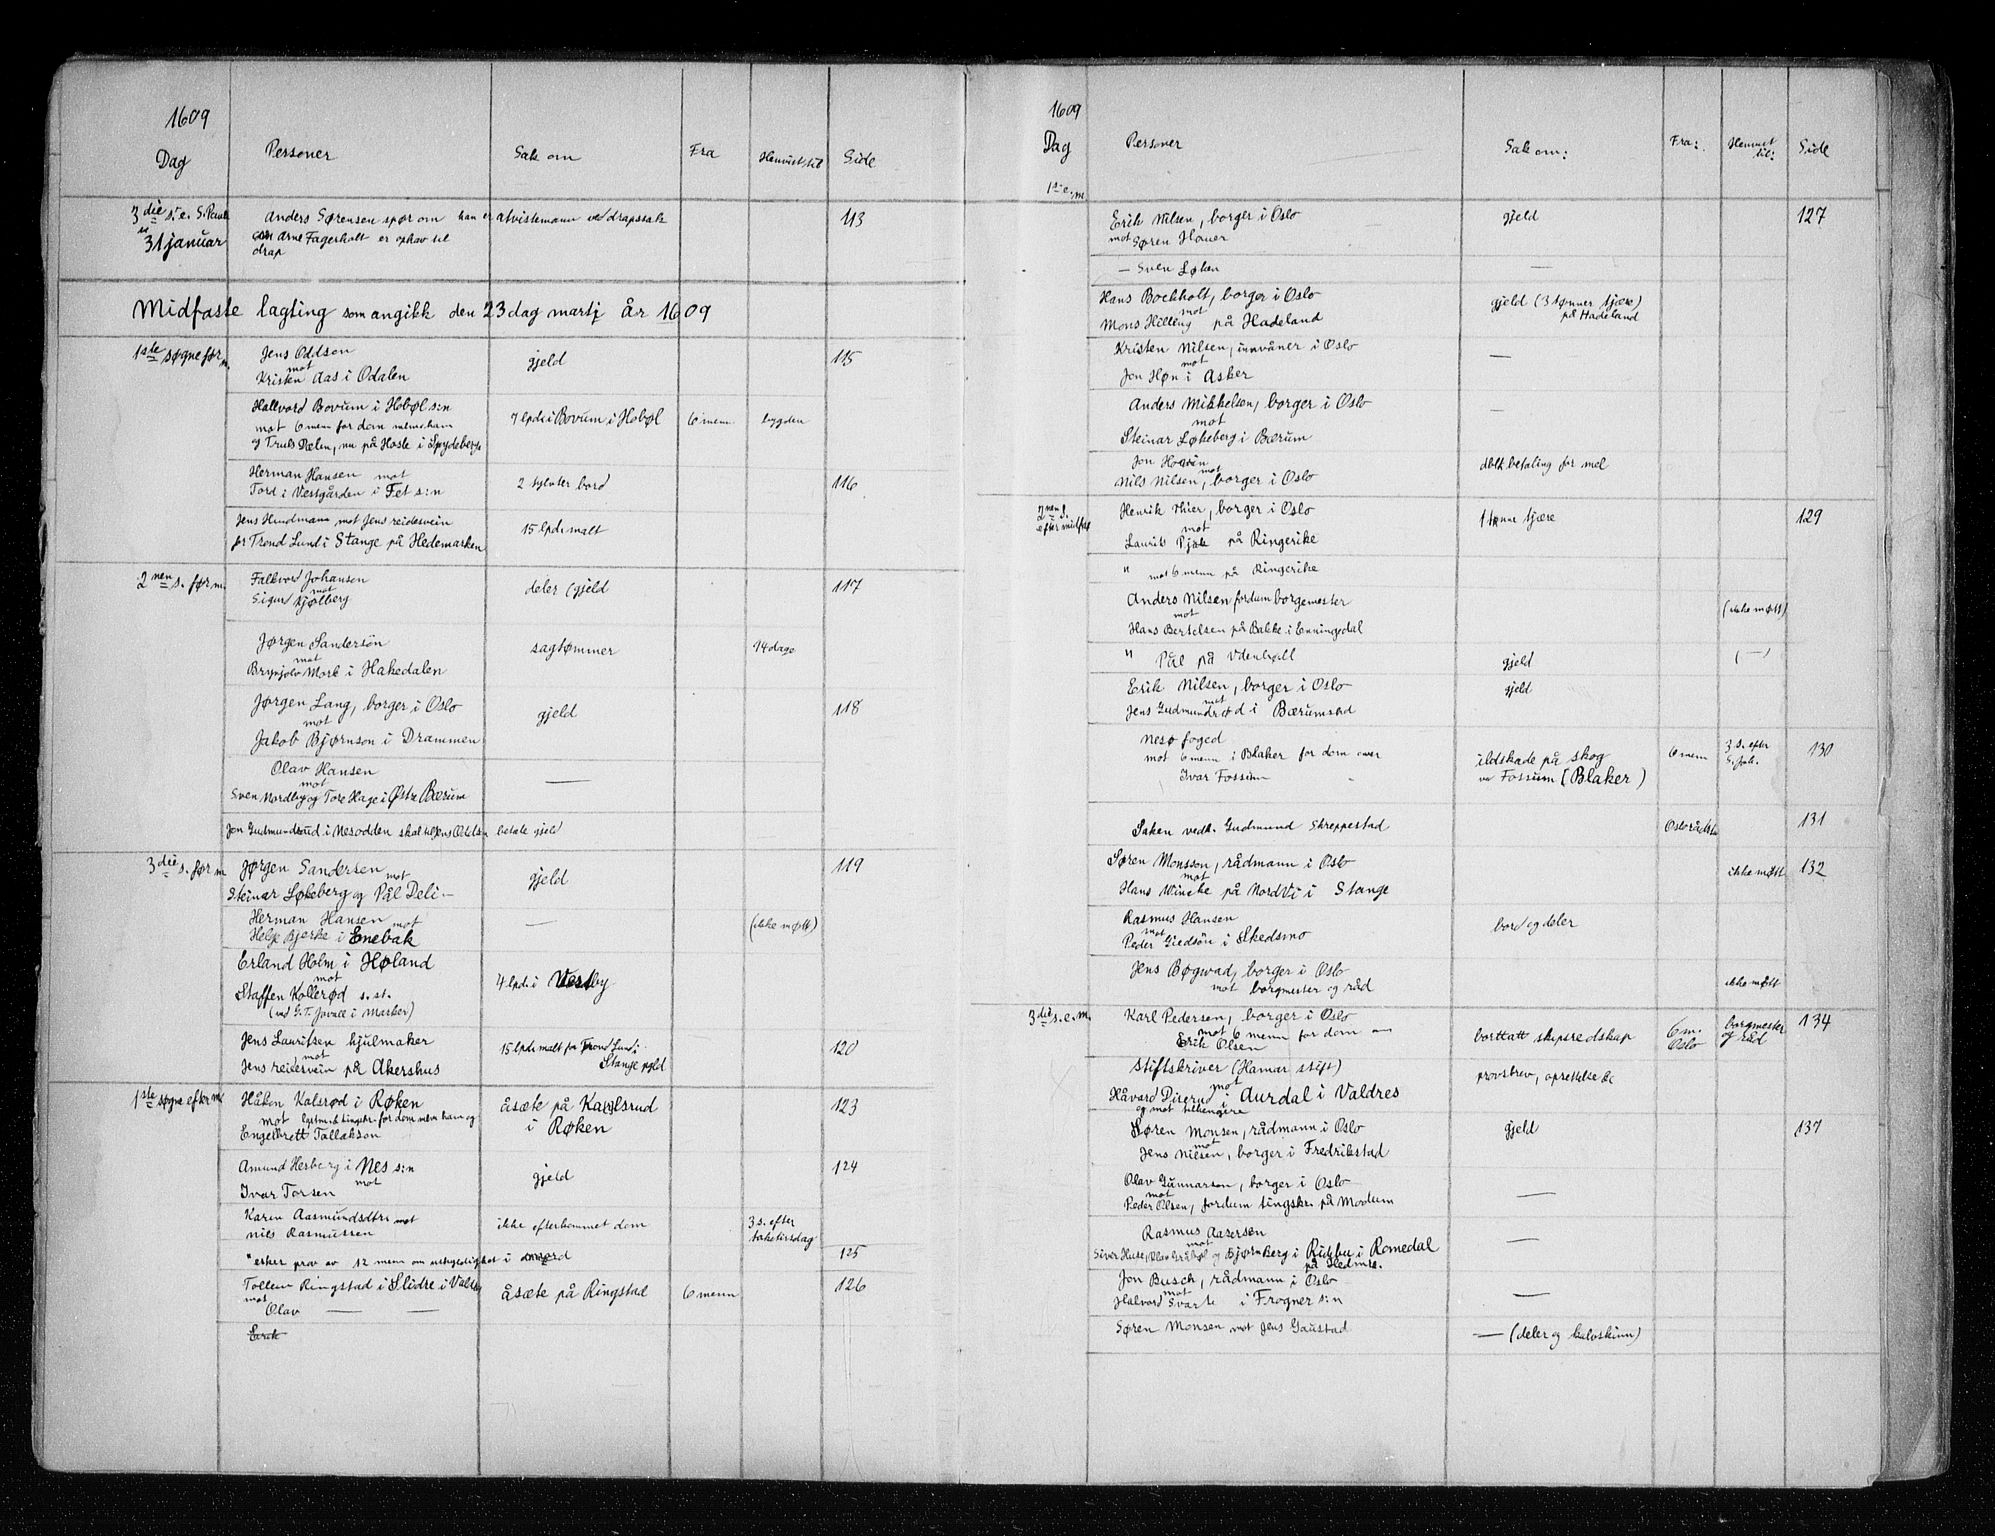 1609
Dag Personer Sak om Fra Henvist til Side
3die s. e. S. Pauls Anders Sørensen spør om han er atvistemann ved drapssak 113
31 januar om Arne Fagerholt er ophav til
drap
Midfaste lagting som angikk den 23 dag martj år 1609
1ste søgne før m. Jens Oddson gjeld 115
mot
Kristen Aas i Odalen
Hallvord Bovum i Hobøl s:n 7 lpd i Bovum i Hobøl 6 menn bygden
mot 6 menn for dom mellem ham
og Truls Delen, nu på Hosle i Spydeberg
Herman Hansen mot 2 tylvter bord 116
Tord i Vestgården i Fet s:n
Jens Hundmann mot Jens reidesvein 15 lpd malt
for Trond Lund i Stange på Hedemarken
2nen s. før m. Falkvord Johansen deler (gjeld 117
mot
Sigurd Kjølberg
Jørgen Sandersön sagtømmer 14 dage
mot
Brynjolv Mork i Hakedalen
Jørgen Lang, borger i Oslo gjeld 118
mot
Jakob Bjørnson i Drammen
Olav Hansen —
mot
Sven Nordby og Tore Hage i Østre Bærum
Jon Gudmundsrud i Nesodden skal til Jens Oldsn betale gjeld
3die s. før m Jørgen Sandersen mot gjeld 119
Steinar Løkeberg og Pål Deli —
Herman Hansen mot — (ikke møtt)
Helje Bjerke i Enebak
Erland Holm i Høland 4 lpd. i Vestby
mot
Staffen Kollerød s. st.
(ved G. T. Jovall i Marker)
Jens Lauritsen hjulmaker 15 lpd malt for Trond Lund i 120
mot Stange pgld
Jens reidesvein på Akershus
1ste søgne efter m Håken Kalsrød i Røken åsæte på Karlsrud 123
mot lagtm. & tingskr. for dom mellem ham og i Røken
Engelbrett Tollakson
Amund Herberg i Nes s:n gjeld 124
mot
Ivar Torsen
Karen Aasmundsdtr mot ikke efterkommet dom 3 s. efter
Nils Rasmussen baketirsdag
" esker prov av 12 menn om uskyldighet i mord 125
Tollem Ringstad i Slidre i Valdres åsæte på Ringstad 6 menn 126
mot
Olav — —
Erik
1609
Dag Personer Sak om: Fra: Henvist til: Side
1ste e. m
Erik Nilsen, borger i Oslo gjeld 127
mot Søren Hauer
— Sven Løken —
Hans Bochholt, borger i Oslo gjeld (3 tønner tjære)
mot på Hadeland
Mons Hilleng på Hadeland
Kristen Nilsen, innvåner i Oslo —
mot
Jon Høn i Asker
Anders Mikkelsen, borger i Oslo —
mot
Steinar Løkeberg i Bærum
Jon Hovin dblt. betaling for mel
mot
Nils Nilsen, borger i Oslo
2nen s. Henrik Thier, borger i Oslo 1 tønne tjære 129
efter midfst mot
Laurits Pjåk på Ringerike
" mot 6 menn på Ringerike
Anders Nilsen fordum borgemester (ikke møtt)
mot
Hans Bertelsen på Bakke i Enningedal
" Pål på Udenholl gjeld (—)
Erik Nilsen, borger i Oslo gjeld
mot
Jens Gudmundrød i Bærumstad
Nesø foged
mot 6 menn i Blaker for dom over ildskade på skog 6 menn 3 s. efter 130
Ivar Fossum ve Fossum (Blaker) S. Joh.
Saken vedk. Gudmund Skreppestad Oslo rådstu 131
Søren Monsson, rådmann i Oslo ikke møtt 132
mot
Hans Wincke på Nordvi i Stange
Rasmus Hansen bord og deler
mot
Peder Giedsön i Skedsmo
Jens Bøgwad, borger i Oslo ikke møtt
mot borgmester og råd
3die s. e. m. Karl Pedersen, borger i Oslo borttatt skipsredskap 6 m. Oslo borgmester og råd 134
mot 6 menn for dom om
Erik Olsen
Stiftskriver (Hamar stift) provsbrev, oprettelse &c
mot
Håvard Diserud i Aurdal i Valdres
og mot tilhengere
Søren Monsen, rådmann i Oslo gjeld 137
mot
Jens Nilsen, borger i Fredrikstad
Olav Gunnarson, borger i Oslo —
mot
Peder Olsen, fordum tingskr. på Modum
Rasmus Aasersen —
mot
Siver Huse, Olav Gråbøl og Bjørn Berg i Ridsbu i Romedal
på Hedmrk.
Jon Busch, rådmann i Oslo —
mot
Halvord Svarte i Frogner s:n
Søren Monsen mot Jens Gaustad — (deler og kalvskinn)